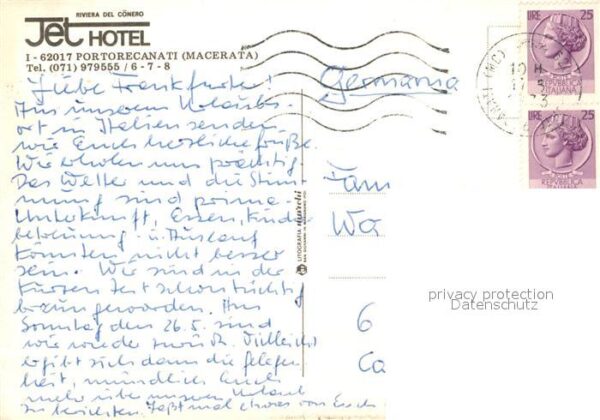 RIVIERA DEL CÒNERO
Jet HOTEL
I - 62017 PORTORECANATI (MACERATA)
Tel. (071) 979555 / 6 - 7 - 8
Liebe Frankfurter!
Aus unserem Urlaubs-
ort in Italien senden
wir Euch herzliche Grüße.
Wir erholen uns prächtig
Das Wetter und die Stim
mung sind prima.
Unterkunft, Essen, Kinder
betreuung u. Auslauf
könnten nicht besser
sein. Wir sind in der
kurzen Zeit schon tüchtig
braun geworden. Am
Sonntag den 26.5. sind
wir wieder zurück. Vielleicht
ergibt sich dann die Gelegen
heit, mündlich Euch
mehr über unseren Urlaub
zu berichten. Laßt mal etwas von Euch
Germania
Fam
Wa
6
Ca
LITOGRAFIA
LIRE 25
REPUBBLICA
ITALIANA
LIRE 25
POSTE
REPUBBLICA
ITALIANA
privacy protection
Datenschutz